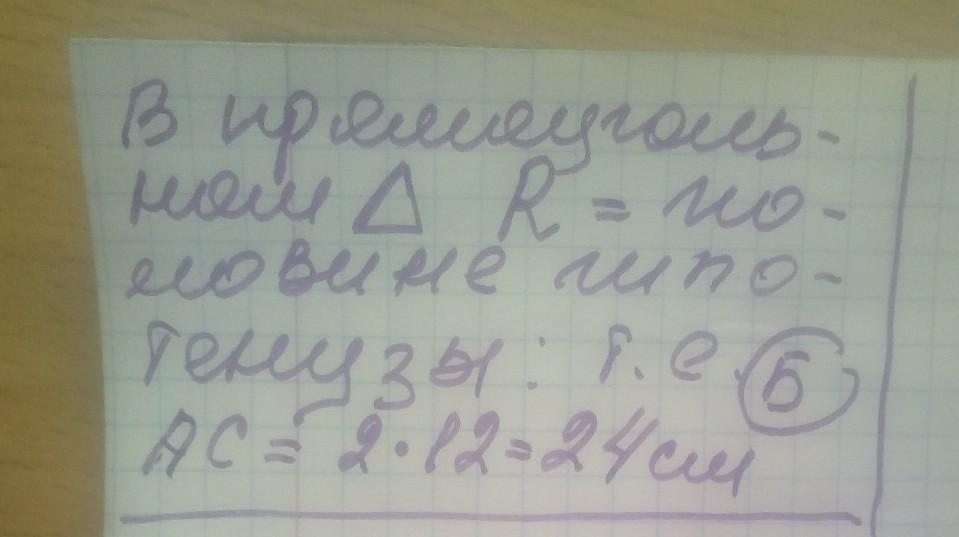 В прямоуголь-
ном Δ R = по-
ловине гипо-
тенузы: т.е. Б
AC = 2·12=24см